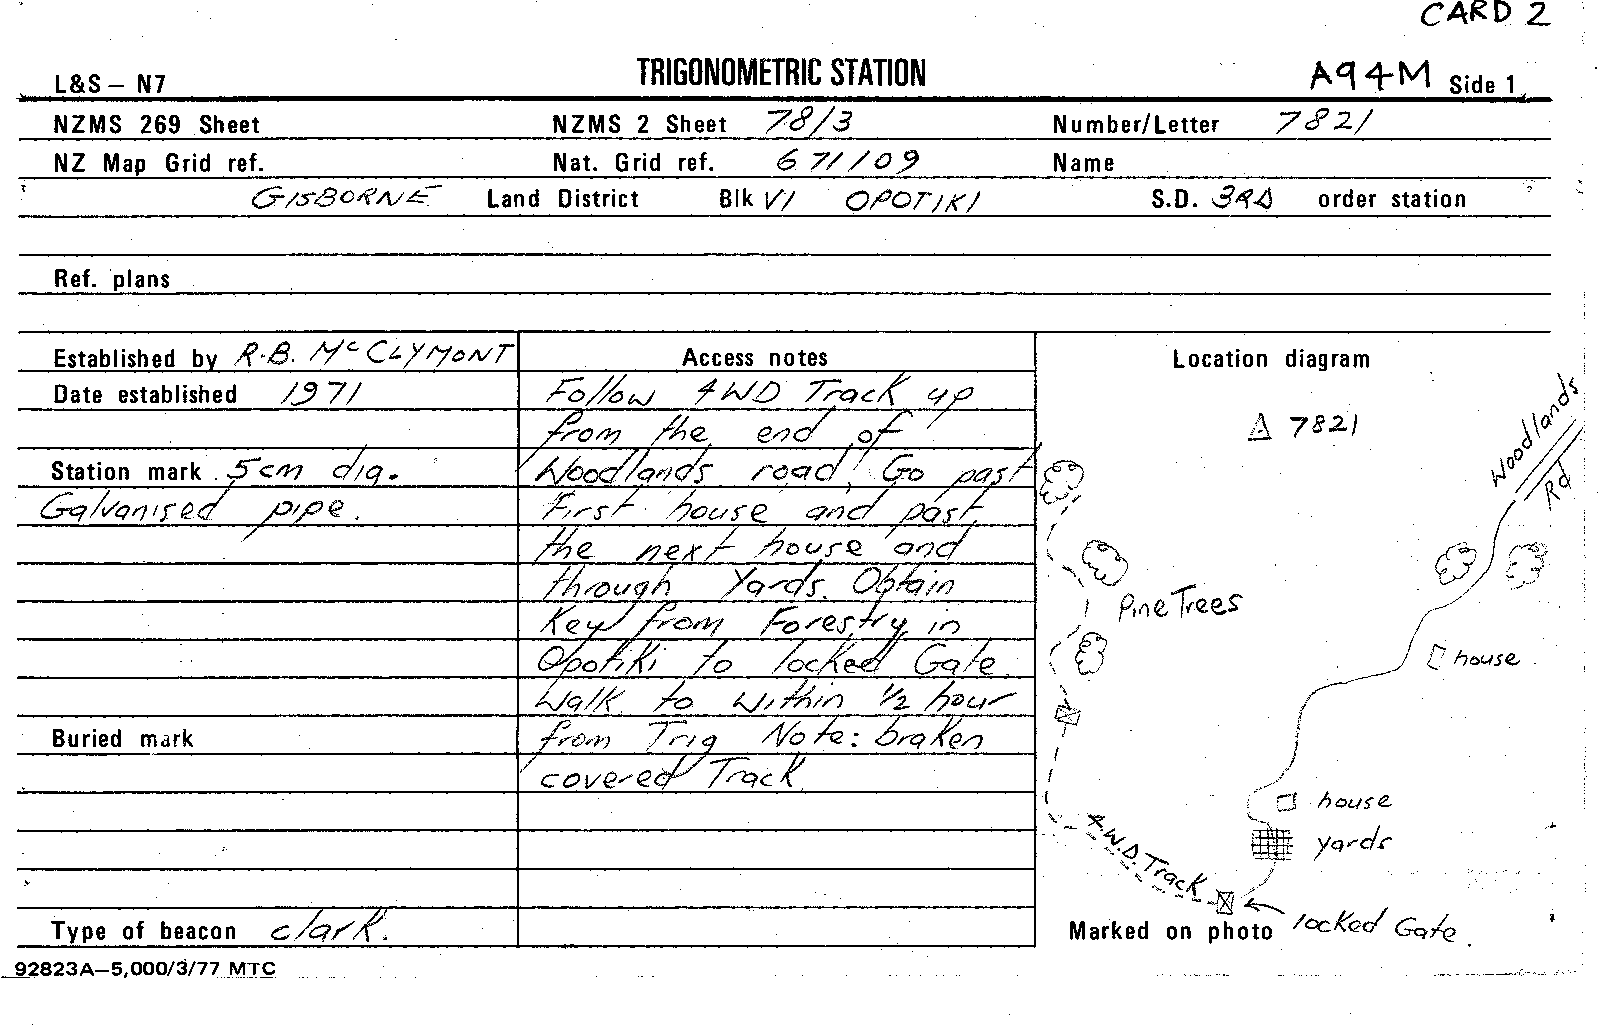 CARD 2
L&S – N7 TRIGONOMETRIC STATION A94M Side 1
NZMS 269 Sheet NZMS 2 Sheet 78/3 Number/Letter 7821
NZ Map Grid ref. Nat. Grid ref. 671109 Name
GISBORNE Land District Blk VI OPOTIKI S.D. 3RD order station
Ref. plans
Established by R.B. McCLYMONT
Date established 1971
Station mark 5cm dia.
Galvanised pipe.
Buried mark
Type of beacon clark.
Access notes
Follow 4WD Track up
from the end of
Woodlands road, Go past
First house and past
the next house and
through Yards. Obtain
Key from Forestry in
Opotiki to locked Gate.
Walk to within 1/2 hour
from Trig Note: braken
covered Track
Location diagram
7821
Woodlands
Rd
Pine Trees
house
house
yards
4.W.D. Track
locked Gate.
Marked on photo
92823A–5,000/3/77 MTC